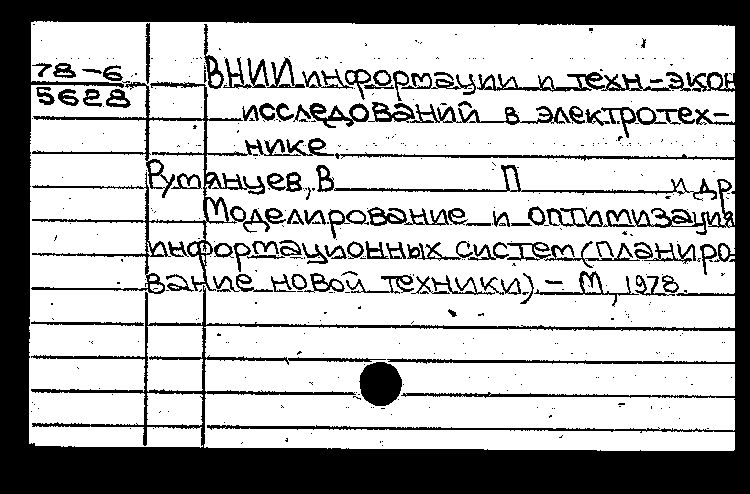 78-6
5628
ВНИИ информации и техн.-экон
исследований в электротех-
нике.
Румянцев, В П и др.
Моделирование и оптимизация
информационных систем (планиро-
вание новой техники). - М., 1978.